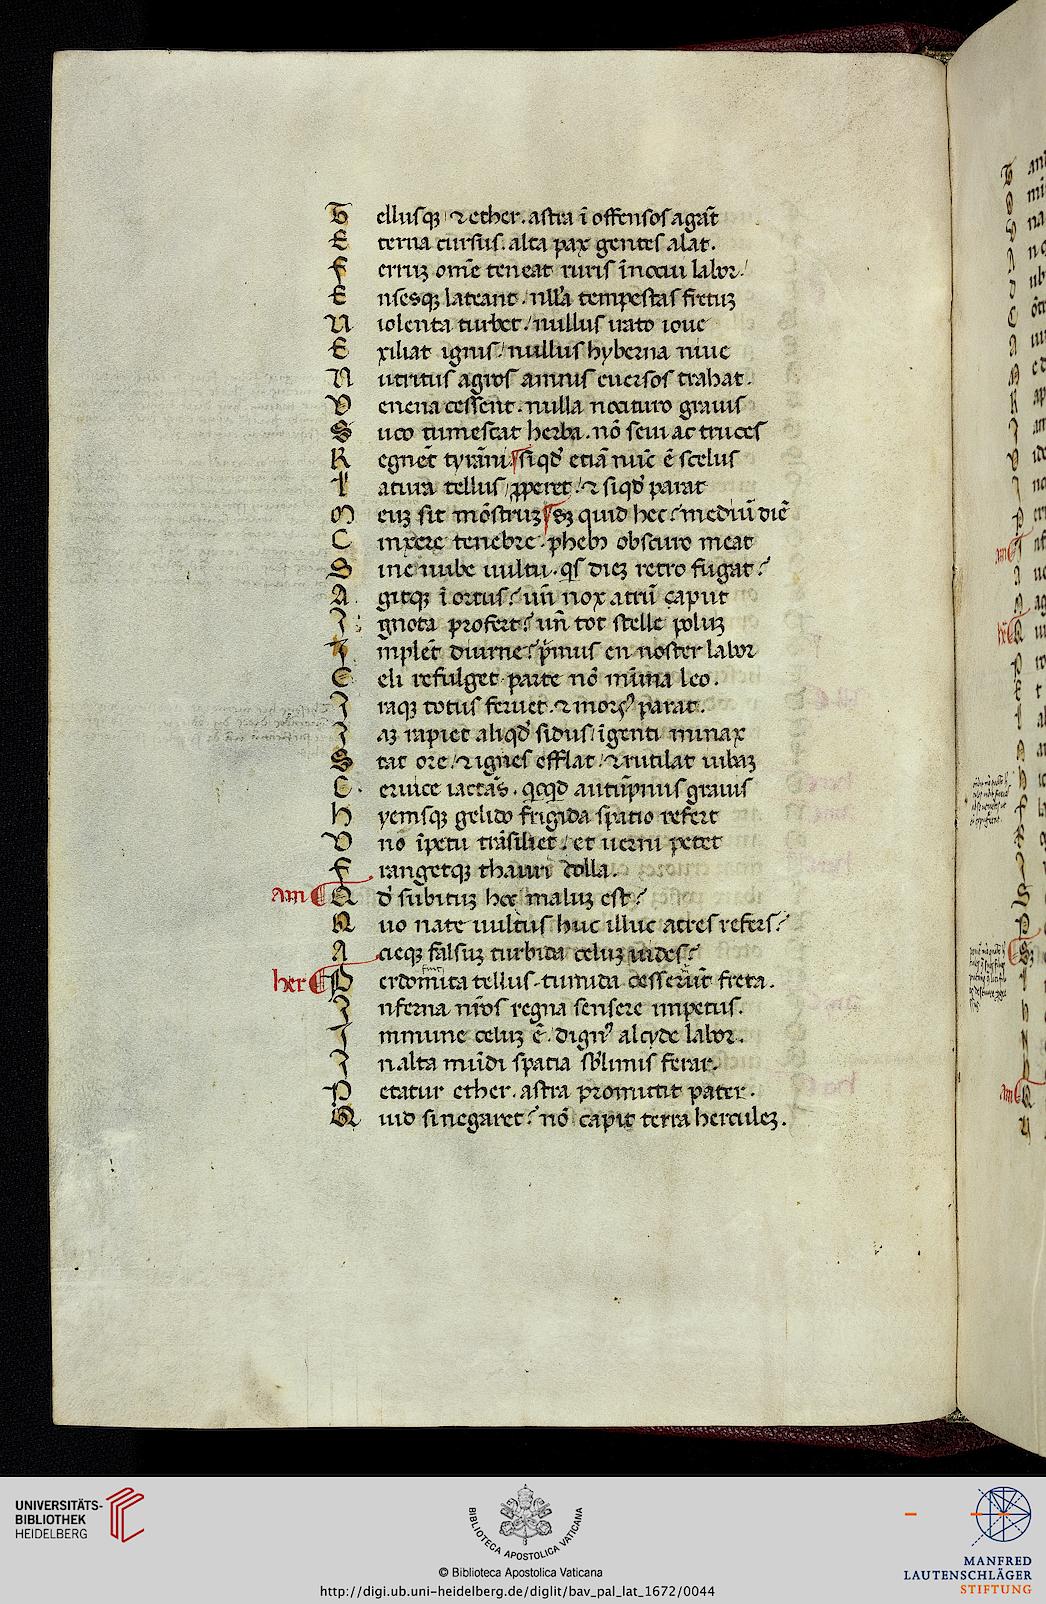 T ellusqꝫ ⁊ ether . astra ī offensos agāt
E terna cursus . alta pax gentes alat .
F erruꝫ om̄e teneat ruris īnocui labor /
E nsesqꝫ lateant . nll̄a tempestas fretuꝫ
U iolenta turbet / nullus irato ioue
E xiliat ignis / nullus hyberna niue
N utritus agros amnis euersos trahat .
V enena cessent . nulla nocituro grauis
S uco tumescat herba . nō seui ac truces
R egnēt tyrāni / siqd̕ etiā nūc ē scelus
L atura tellus / ꝓperet / ⁊ siqd̕ parat
M euꝫ sit mōstruꝫ / sꝫ quid hec ? mediū diē
C inxere tenebre . phebꝰ obscuro meat
S ine nube uultu . qͥs dieꝫ retro fugat ?
A gitqꝫ ī ortus ? un̄ nox atrū caput
I gnota profert ? un̄ tot stelle poluꝫ
I mplēt diurne ? p̄mus en noster labor
C eli refulget parte nō mīma leo .
I raqꝫ totus feruet . ⁊ morsꝰ parat .
I aꝫ rapiet aliqd̕ sidus / īgenti minax
S tat ore / ⁊ ignes efflat / ⁊ rutilat iubaꝫ
C eruice iactās . qͥcqͥd autūpnus grauis
H yemsqꝫ gelido frigida spatio refert
V no īpetu trāsiliet / et uerni petet
F rangetqꝫ thauri colla .
am Q d̕ subituꝫ hoc maluꝫ est ?
Q uo nate uultus huc illuc acres refers ?
A cieqꝫ falsuꝫ turbida celuꝫ uides ?
her P erdomita tellus . tumida cesserūt freta .
I nferna nr̄os regna sensere impetus .
I mmune celuꝫ ē . dignꝰ alcyde labor .
I n alta mūdi spatia sb̕limis ferar .
P etatur ether . astra promittit pater .
Q uid si negaret ? nō capit terra herculeꝫ .
UNIVERSITÄTS-
BIBLIOTHEK
HEIDELBERG
BIBLIOTECA APOSTOLICA VATICANA
© Biblioteca Apostolica Vaticana
http://digi.ub.uni-heidelberg.de/diglit/bav_pal_lat_1672/0044
MANFRED
LAUTENSCHLÄGER
STIFTUNG